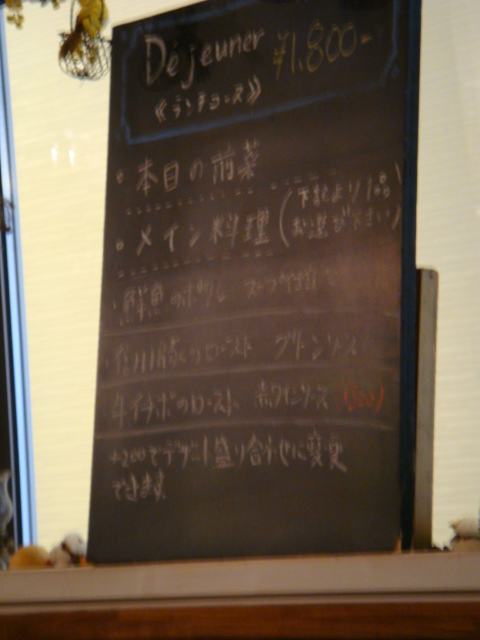 Déjeuner ¥1,800-
《ランチコース》
・本日の前菜
・メイン料理 (下記より1品
お選び下さい)
・鮮魚のポワレ スープ仕立て
豚のロースト
牛イチボのロースト 赤ワインソース
+200でデザート盛り合わせに変更
できます。